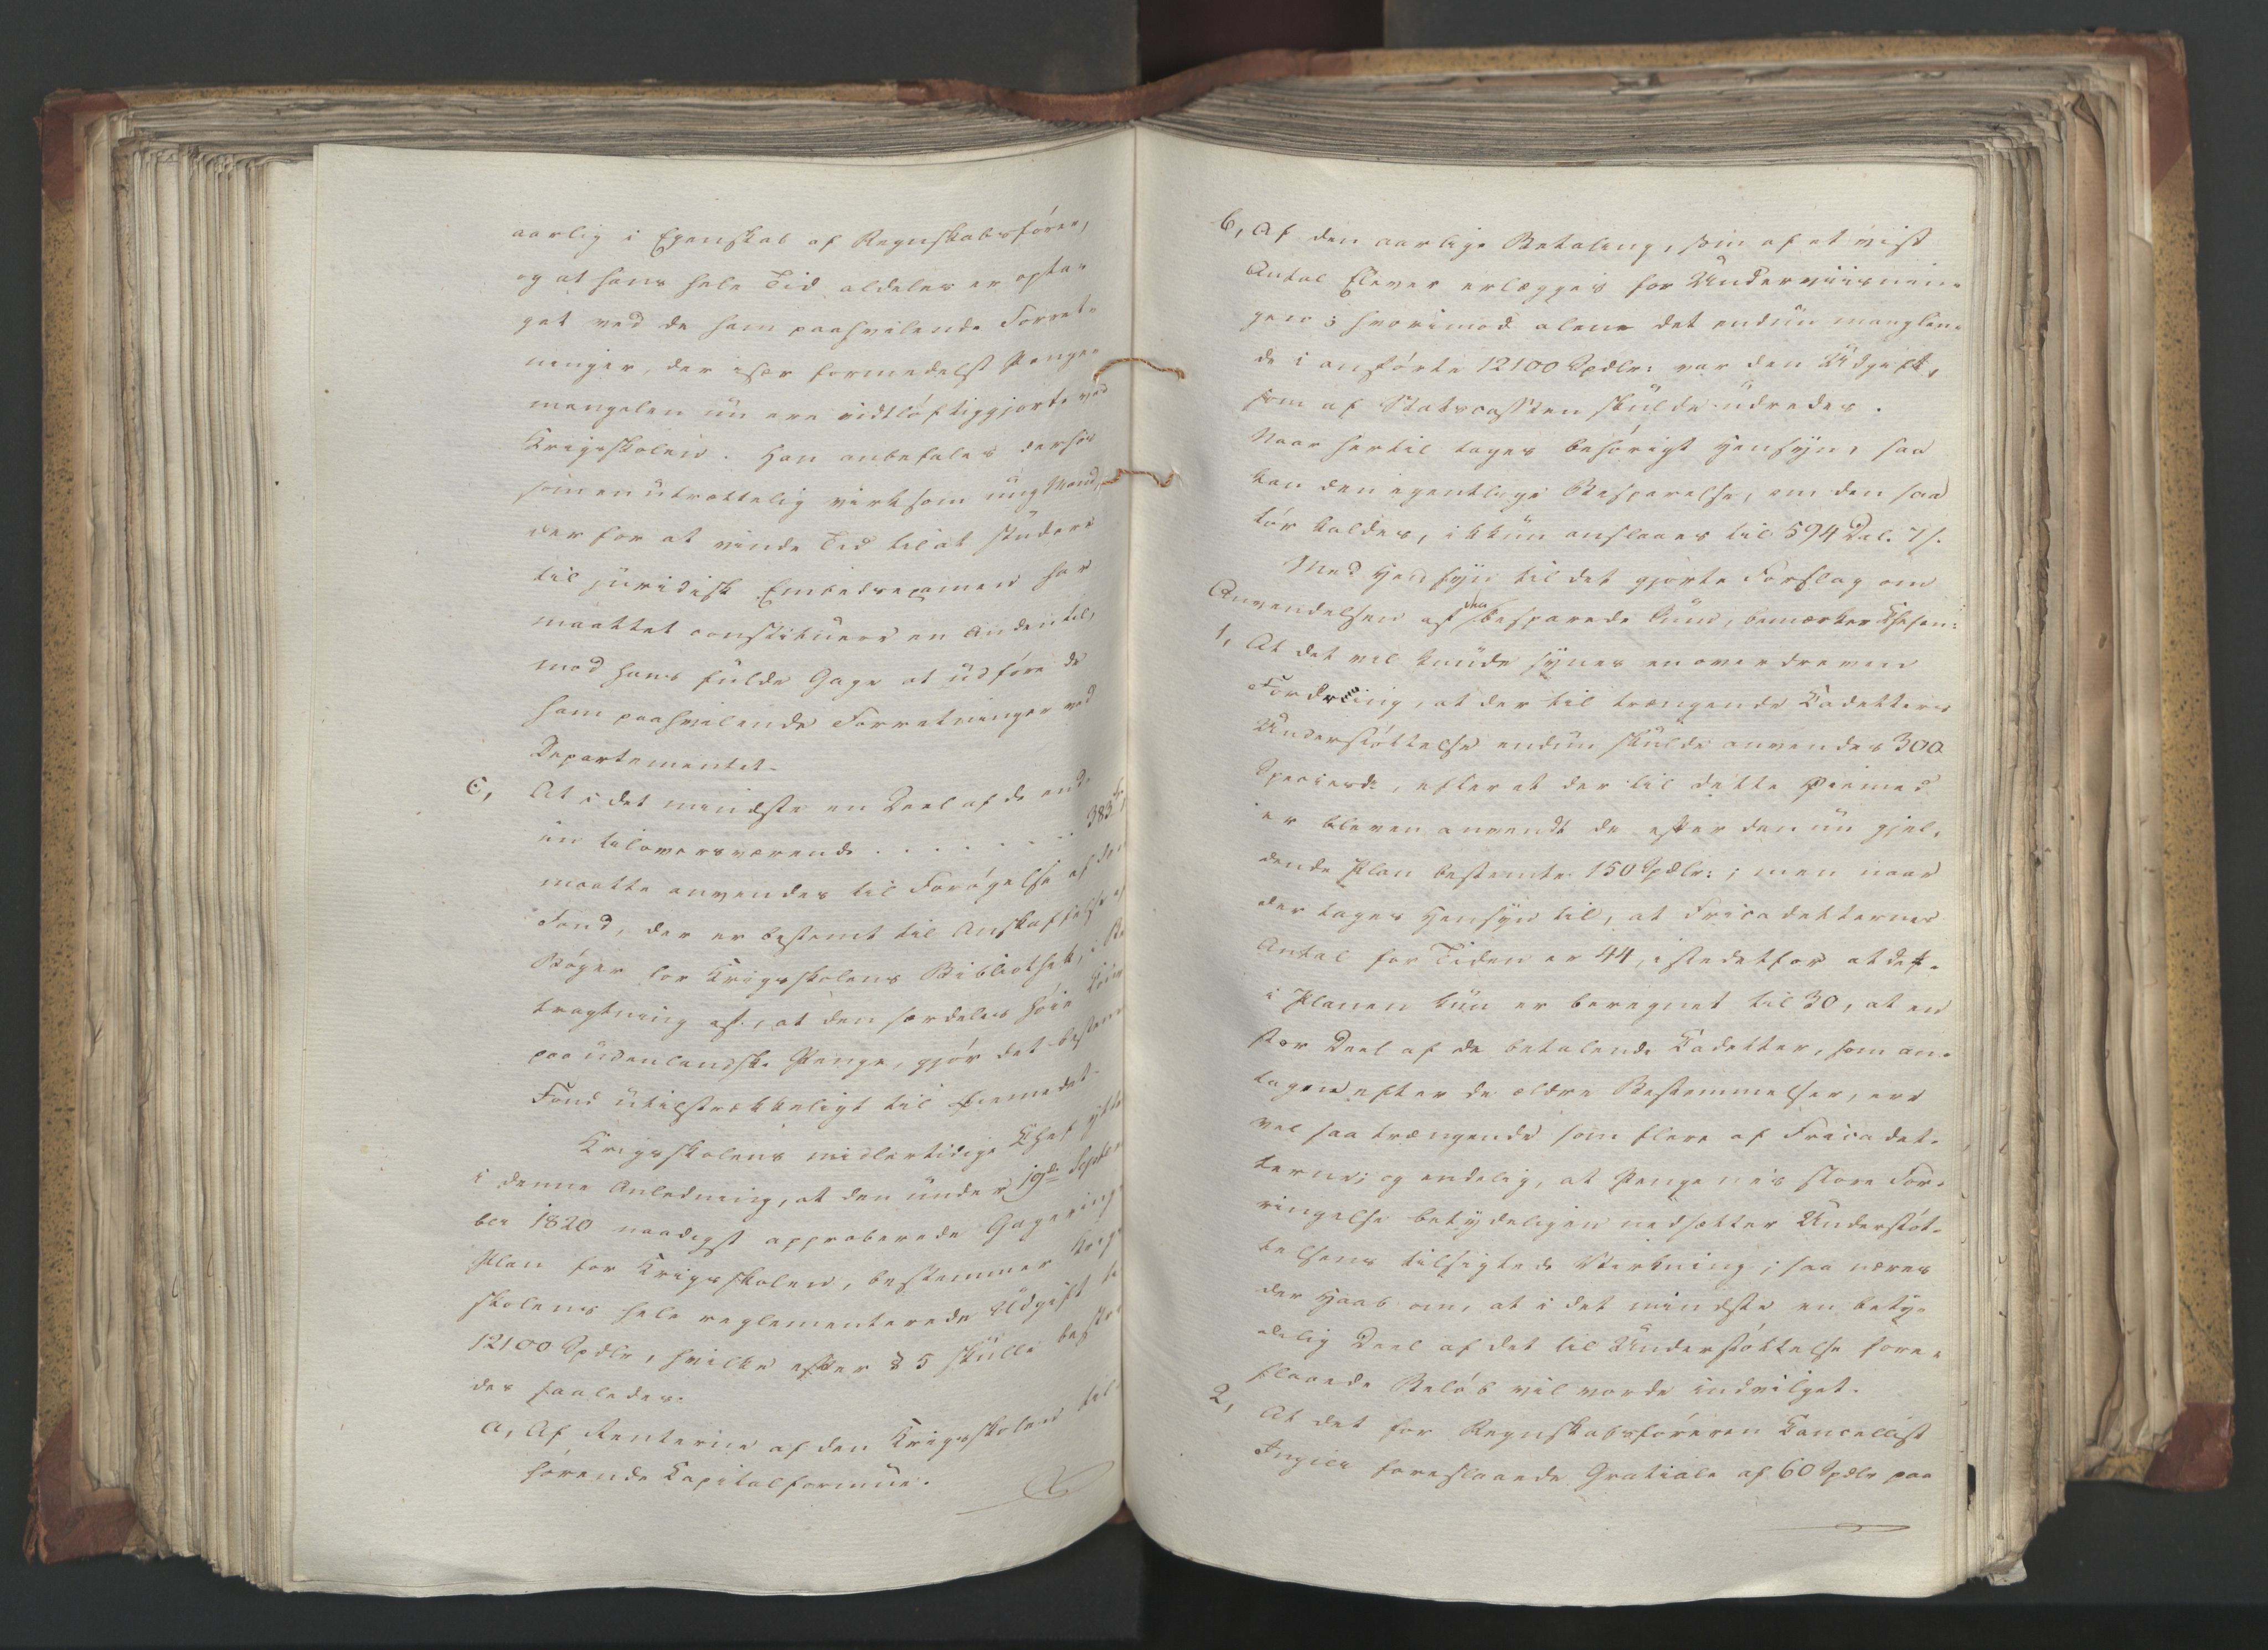 aarlig i Egenskab af Regnskabsfører,
og at hans hele Tid aldeles er opta-
get ved de ham paahvilende Forret-
ninger, der især formedelst Penge-
mangelen nu ere vidtløftiggjorte ved
Krigsskolen. Han anbefales derhos
som en utrættelig virksom ung Mand,
der for at vinde Tid til at studere
til juridisk Embedsexamen har
maattet constituere en Anden til,
mod hans fulde Gage at udføre de
ham paahvilende Forretninger ved
Departementet.
c, At i det mindste en Deel af de end-
nu tiloversværende . . . . . . . 383
maatte anvendes til Forøgelse af den
Fond, der er bestemt til Anskaffelse af
Bøger for Krigsskolens Bibliothek, i Be-
tragtning af, at den særdeles høie
paa udenlandske Penge, gjør det bestemte
Fond utilstrækkeligt til Øiemedet.
Krigsskolens midlertidige Chef yttrer
i denne Anledning, at den under 19de Septem-
ber 1820 naadigst approberede Gagerings-
Plan for Krigsskolen, bestemmer Krigs-
skolens hele reglementerede Udgift til
12100 Spdlr, hvilke efter § 5 skulle bestri-
des saaledes.
a, Af Renterne af den Krigsskolen til-
hørende Capitalformue.
b, Af den aarlige Betaling, som af et vist
Antal Elever erlægges for Underviisnin-
gen; hvorimod alene det endnu manglen-
de i anførte 12100 Spdlr: var den Udgift,
som af Statscassen skulde udredes.
Naar hertil tages behørigt Hensyn, saa
kan den egentlige Besparelse, om den saa
tør kaldes, ikkun anslaaes til 594 Dal. 7 s.
Med Hensyn til det gjorte Forslag om
Anvendelsen af den besparede Sum, bemærker Chefen:
1, At det vel kunde synes en overdreven
Fordring, at der til trængende Cadetters
Understøttelse endnu skulde anvendes 300
Speciesd, efterat der til dette Øiemed
er bleven anvendt de efter den nu gjel-
dende Plan bestemte 150 Spdlr:; men naar
der tages Hensyn til, at Fricadetternes
Antal for Tiden er 44, istedetfor at det
i Planen kun er beregnet til 30, at en
stor Deel af de betalende Cadetter, som an-
tagne efter de ældre Bestemmelser, ere
vel saa trængende som flere af Fricadet-
terne; og endelig, at Pengenes store For-
ringelse betydeligen nedsætter Understøt-
telsens tilsigtede Virkning; saa næres
der Haab om, at i det mindste en bety-
delig Deel af det til Understøttelse fore-
slaaede Beløb vil vorde indvilget.
2, At det for Regnskabsføreren Cancellist
foreslaaede Gratiale af 60 Spdlr paa